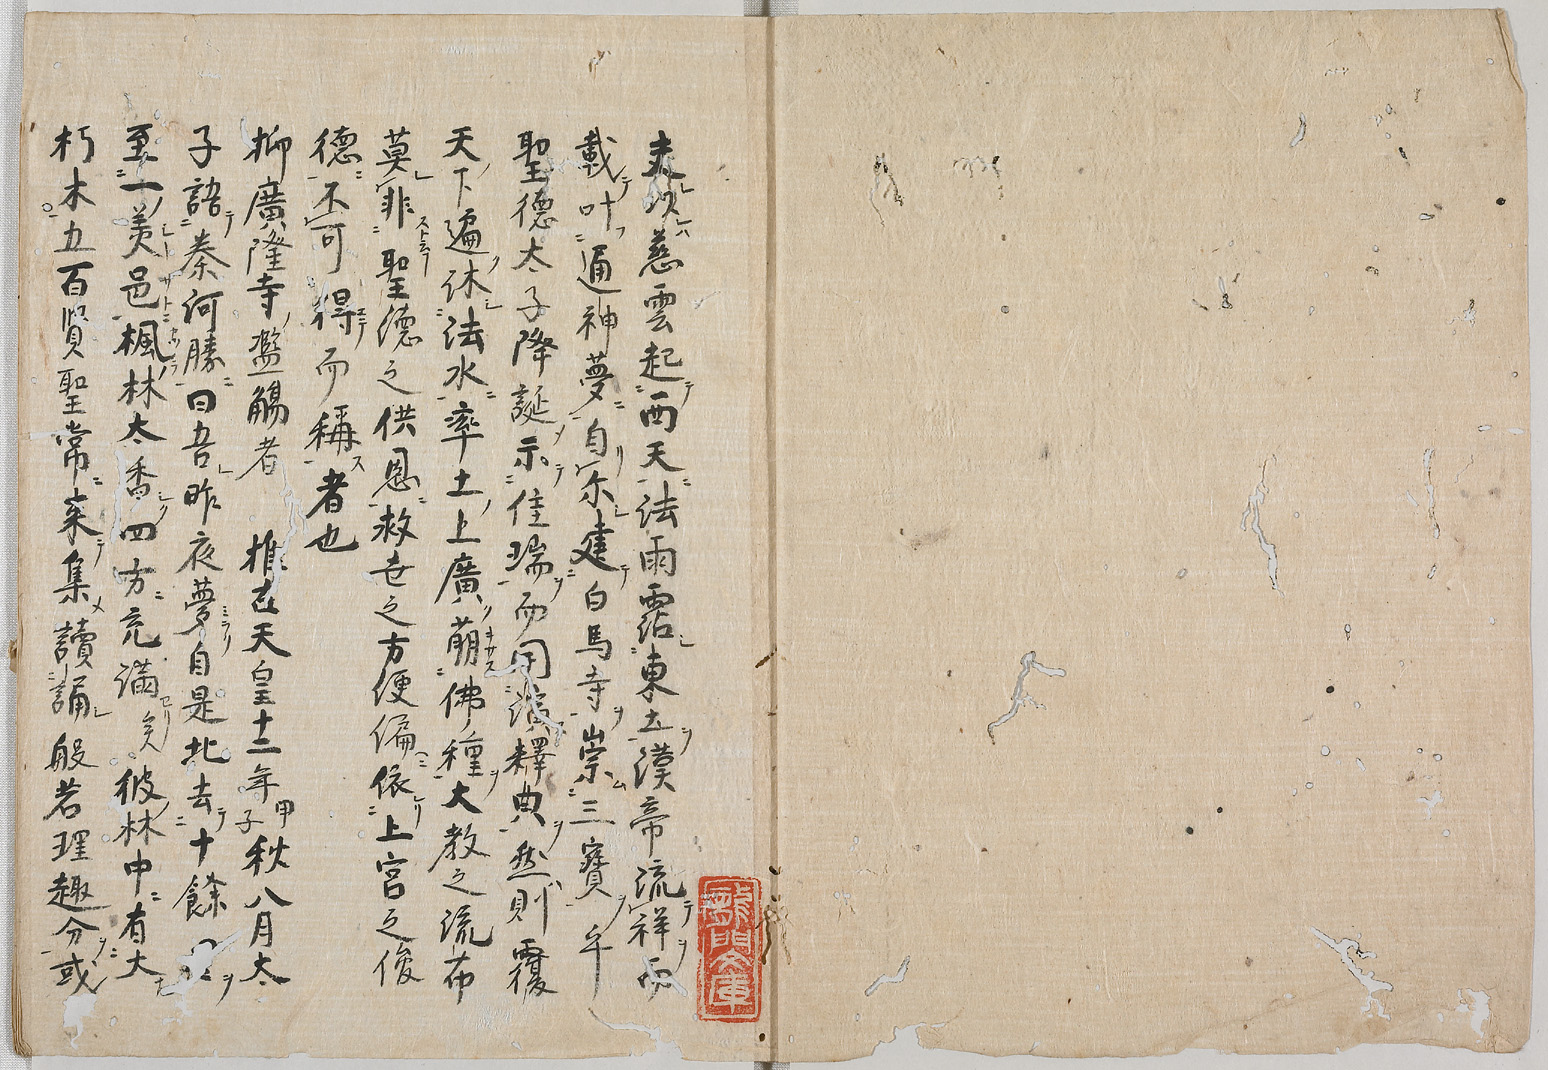 夫以慈雲起西天法雨霑東土漢帝流祥而
載叶通神夢自尓建白馬寺崇三寶乎
聖德太子降誕示佳瑞而用演釋典然則覆
天下遍沐法水率土上廣萠佛種大教之流布
莫非聖德之供恩救世之方便偏依上宮之俊
德不可得而稱者也
抑廣隆寺濫觴者 推古天皇十二年甲子秋八月太
子語秦河勝曰吾昨夜夢自是北去十餘
至一美邑楓林太香四方充滿矣彼林中有大
朽木五百賢聖常来集讀誦般若理趣分或
龍門文庫